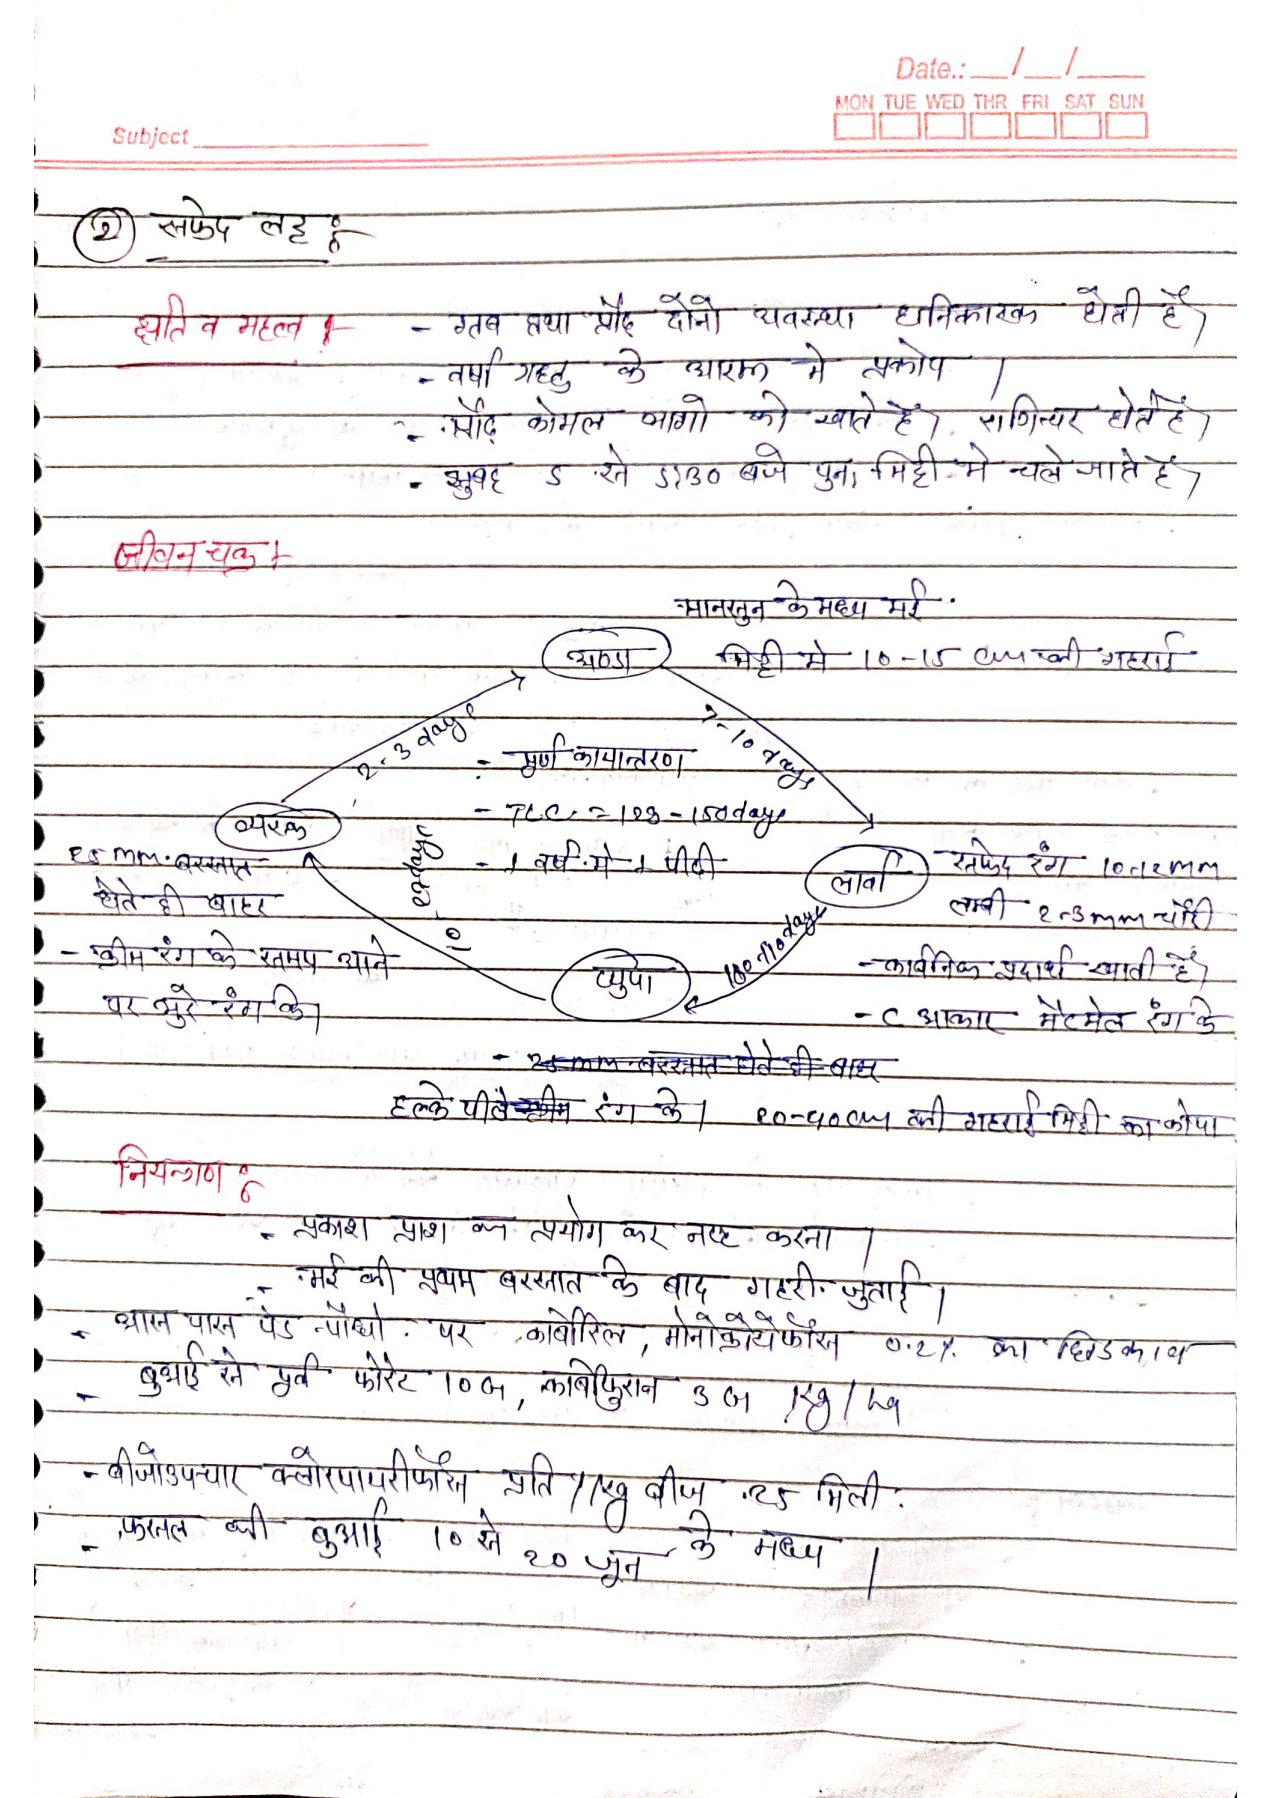 Date.: __/__/____
MON TUE WED THR FRI SAT SUN
Subject
② सफेद लट :-
क्षति व महत्व :- - ग्रब तथा प्रौढ दोनो अवस्था हानिकारक होती है।
- वर्षा ऋतु के आरम्भ मे प्रकोप ।
- प्रौढ कोमल भागो को खाते है। रात्रिचर होते है।
- सुबह 5 से 5:30 बजे पुनः मिट्टी मे चले जाते है।
जीवन चक्र :-
मानसून के मध्य मई
अण्डा मिट्टी मे 10-15 cm की गहराई
2-3 days 7-10 days
- पूर्ण कायान्तरण
- TLC =
व्यस्क
- 1 वर्ष मे 1 पीढी
25 mm बरसात
होते ही बाहर
- क्रीम रंग के समय आने
पर भुरे रंग के।
10-22 days
लार्वा सफेद रंग 10-12 mm
लम्बी 2-3 mm चौडी
- कार्बनिक पदार्थ खाती है।
- C आकार मटमेल रंग के
प्युपा
- 25 mm बरसात होते ही बाहर
हल्के पीले क्रीम रंग के। 20-40 cm की गहराई मिट्टी का कोपा
नियन्त्रण :-
- प्रकाश प्राश का प्रयोग कर नष्ट करना ।
- मई की प्रथम बरसात के बाद गहरी जुताई ।
- आस पास पेड पौधो पर कार्बोरिल, मोनोक्रोटोफॉस 0.2% का छिडकाव
- बुआई से पूर्व फोरेट 10G, कार्बोफुरान 3G /Kg/ha
- बीजोउपचार क्लोरपायरीफॉस प्रति 1 Kg बीज 25 मिली.
- फसल की बुआई 10 से 20 जून के मध्य ।